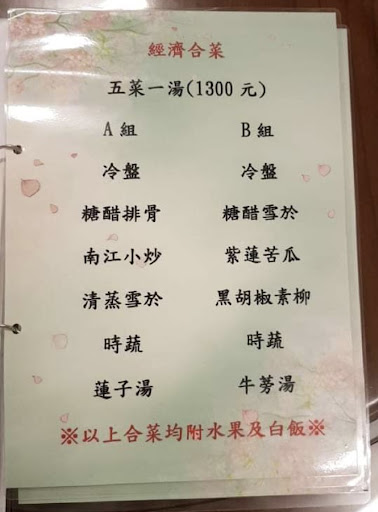 經濟合菜
五菜一湯(1300 元)
A 組 B 組
冷盤 冷盤
糖醋排骨 糖醋雪於
南江小炒 紫蓮苦瓜
清蒸雪於 黑胡椒素柳
時蔬 時蔬
蓮子湯 牛蒡湯
※以上合菜均附水果及白飯※